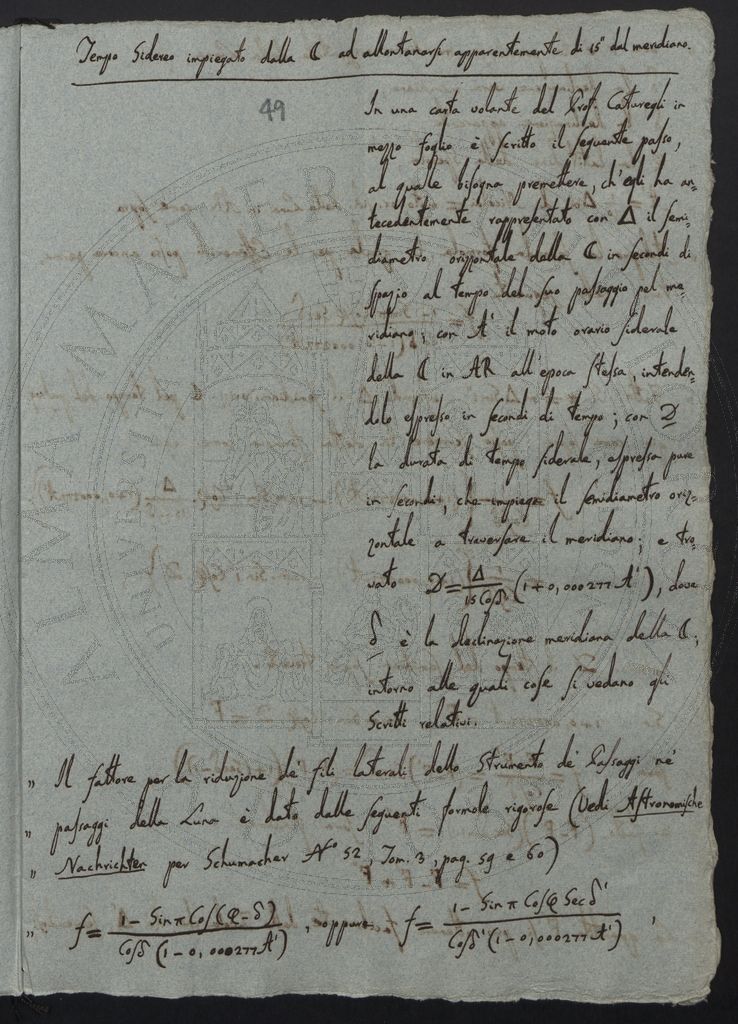 Tempo Sidereo impiegato dalla ☾ ad allontanarsi apparentemente di 15" dal meridiano.
49
In una carta volante del Prof. Caturegli in
mezzo foglio è scritto il seguente passo,
al quale bisogna premettere, ch'egli ha an-
tecedentemente rappresentato con Δ il semi-
diametro orizzontale della ☾ in secondi di
spazio al tempo del suo passaggio pel me-
ridiano; con A' il moto orario siderale
della ☾ in AR all'epoca stessa, intenden-
dolo espresso in secondi di tempo; con D
la durata di tempo siderale, espressa pure
in secondi, che impiega il semidiametro oriz-
zontale a traversare il meridiano; e tro-
vato D = Δ / 15 Cosδ (1 + 0,000277 A'), dove
δ è la declinazione meridiana della ☾;
intorno alle quali cose si vedano gli
scritti relativi.
„ Il fattore per la riduzione de' fili laterali dello Strumento de' Passaggi ne'
„ passaggi della Luna è dato dalle seguenti formole rigorose (Vedi Astronomische
„ Nachrichten per Schumacher N° 52, Tom. 3, pag. 59 e 60)
„ f = 1 − Sin π Cos(φ − δ) / Cosδ (1 − 0,000277 A') , oppure f = 1 − Sin π Cosφ Sec δ' / Cosδ' (1 − 0,000277 A') ,
ALMA MATER
UNIVERSITÀ